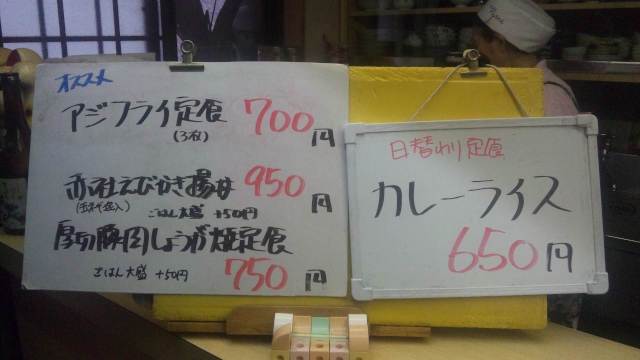 オススメ
アジフライ定食 700円
(3枚)
赤社えびかき揚丼 950円
ごはん大盛 +50円
厚切豚肉しょうが焼定食
ごはん大盛 +50円 750円
日替わり定食
カレーライス
650円